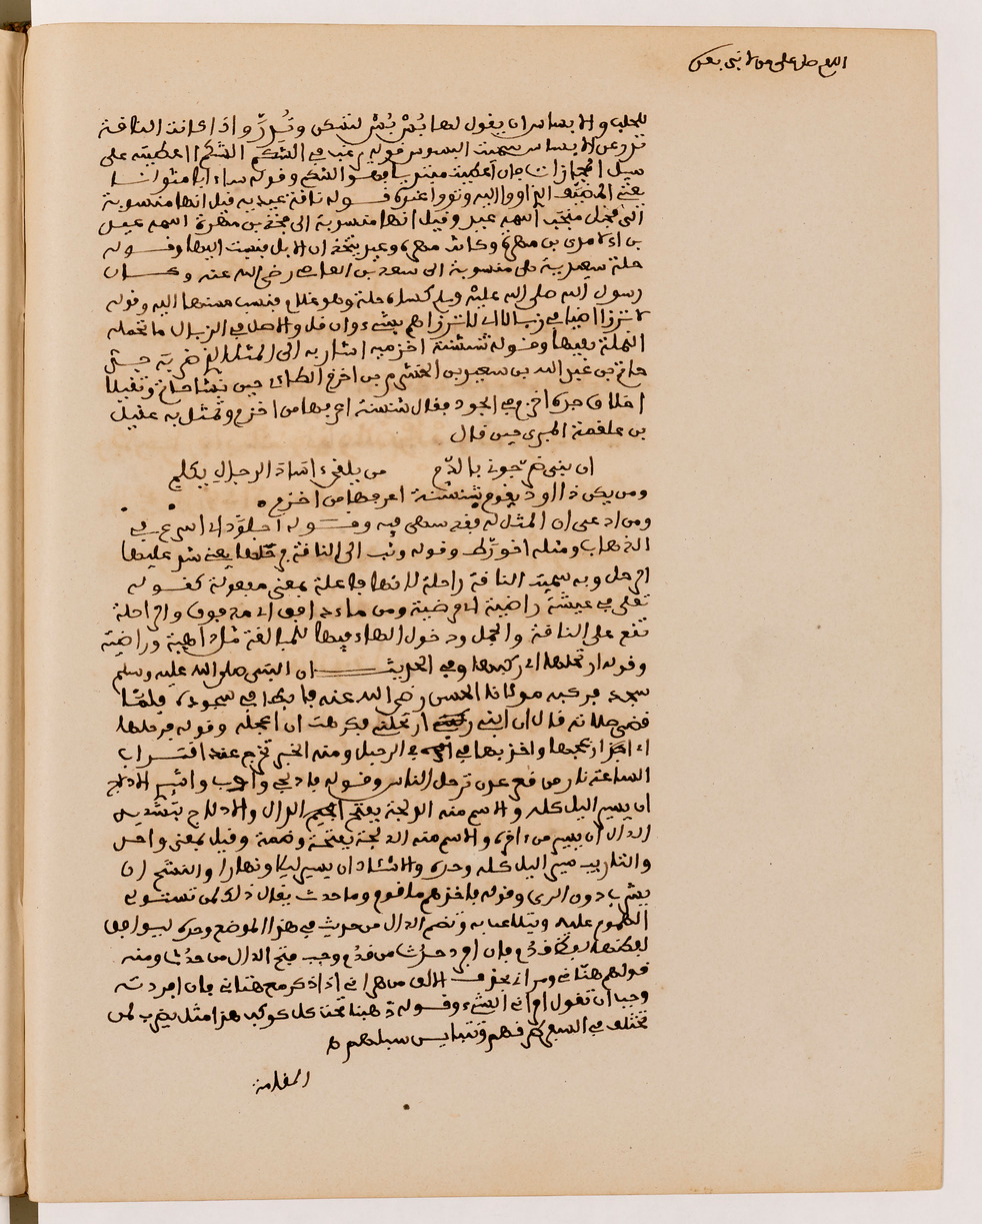 اللهم صل على من لا نبي بعده
للحلب والابساس ان يقول لها بُسْ بُسْ لتسكن وتُدِرّ واذا كانت الناقة
تدر على الابساس سميت البسوس قوله يرغب في الشكم الشكم العطية على
سبيل المجازات فان اعطيت مبتديا فهو الشكم وقوله ساء ابا مثوانا
يعني المضيف الذي اووا اليه وثووا عنده قوله ناقة عيدية قيل انها منسوبة
الى فحل منجب اسمه عيد وقيل انها منسوبة الى فخذ من مهرة اسمه عيد
بن الامري بن مهرة وكانت مهرة وعيد يتخذان الابل فنسبت اليها وقوله
حلة سعدية هي منسوبة الى سعد بن العاص رضي الله عنه وكان
رسول الله صلى الله عليه وسلم كساه حلة وهو غلام فنسب جنسها اليه وقوله
لا ترزا اضيافي زبالا اي لا ترزاهم بشيء وان قل والاصل في الزبال ما تحمله
النملة بفيها وقوله شنشنة اخزمية اشار به الى المثل الذي ضربه جد
حاتم بن عبد الله بن سعد بن الحشرم بن اخزم الطائي حين نشا حاتم وتقيل
اخلاق جده اخزم في الجود فقال شنشنة اعرفها من اخزم وتمثل به عقيل
بن علقمة المري حين قال
ان بني ضرجوني بالدم من يلق اساد الرجال يكلم
ومن يكن ذا اود يقوم شنشنة اعرفها من اخزم
ومن ادعى ان المثل له فقد سهى فيه وقوله اجلوّذ اي اسرع في
الذهاب ومثله اخروّط وقوله وثب الى الناقة فرحلها يعني شد عليها
الرحل وبه سميت الناقة راحلة لانها فاعلة بمعنى مفعولة كقوله
تعلى في عيشة راضية اي مرضية ومن ماء دافق اي مدفوق والراحلة
تقع على الناقة والجمل ودخول الهاء فيها للمبالغة مثل داهية وراضية
وقوله ارتحلها اي ركبها وفي الحديث ان النبي صلى الله عليه وسلم
سجد فركبه مولانا الحسن رضي الله عنه فابطا في سجوده فلما
قضى صلاته قال ان ابني ارتحلني فكرهت ان اعجله وقوله فرحلها
اي ازعجها واخذ بها في الرحيل ومنه الخبر تخرج عند اقتراب
الساعة نار من قعر عدن ترحل الناس وقوله فادلجي واوبي واسئدي الادلاج
ان يسير الليل كله والاسم منه الدلجة بفتح الدال والادلاج بتشديد
الدال ان يسير من اخره والاسم منه الدلجة بفتحة وضمة وقيل بمعنى واحد
والتاويب سير الليل كله وحده والاسئاد ان يسير ليلا ونهارا والنشح ان
يشرب دون الري وقوله فاخذهم ما قدم وما حدث يقال ذلك لمن تستولي
الهموم عليه وتتلاعب به وتضم الدال من حدث في هذا الموضع وحده ليوافق
لفظة قدُم فان افرد حدث من قدُم وجب فتح الدال من حدث ومنه
قولهم هناني ومراني بحذف الالف من امراني اذا ذكر مع هناني فان افردته
وجب ان تقول امراني الشيء وقوله ذهبنا تحت كل كوكب هذا مثل يضرب لمن
تختلف في السعي طرقهم وتتباين سبلهم
المقامة